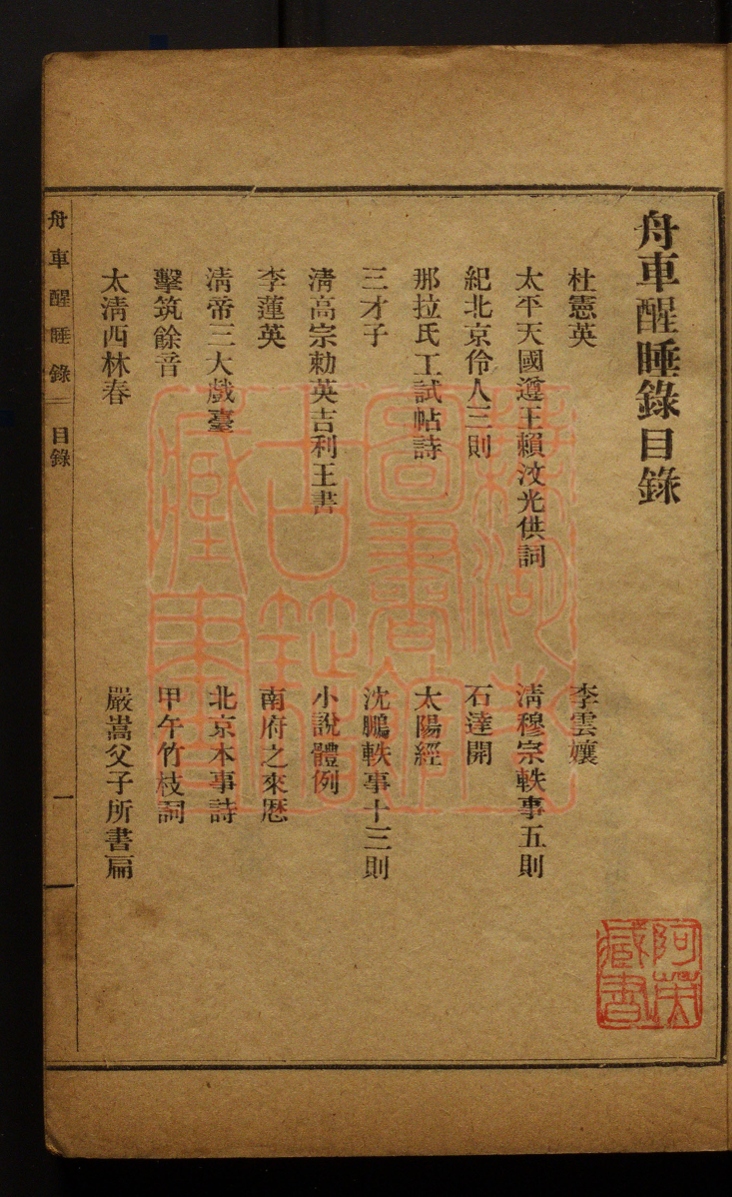 舟車醒睡錄目錄
杜憲英
李雲孃
太平天國遵王賴汶光供詞
淸穆宗軼事五則
紀北京伶人三則
石達開
那拉氏工試帖詩
太陽經
三才子
沈鵬軼事十三則
淸高宗勅英吉利王書
小說體例
李蓮英
南府之來歷
淸帝三大戲臺
北京本事詩
擊筑餘音
甲午竹枝詞
太淸西林春
嚴嵩父子所書扁
舟車醒睡錄 目錄
一
阿英藏書
蕪湖市圖書館古籍藏書